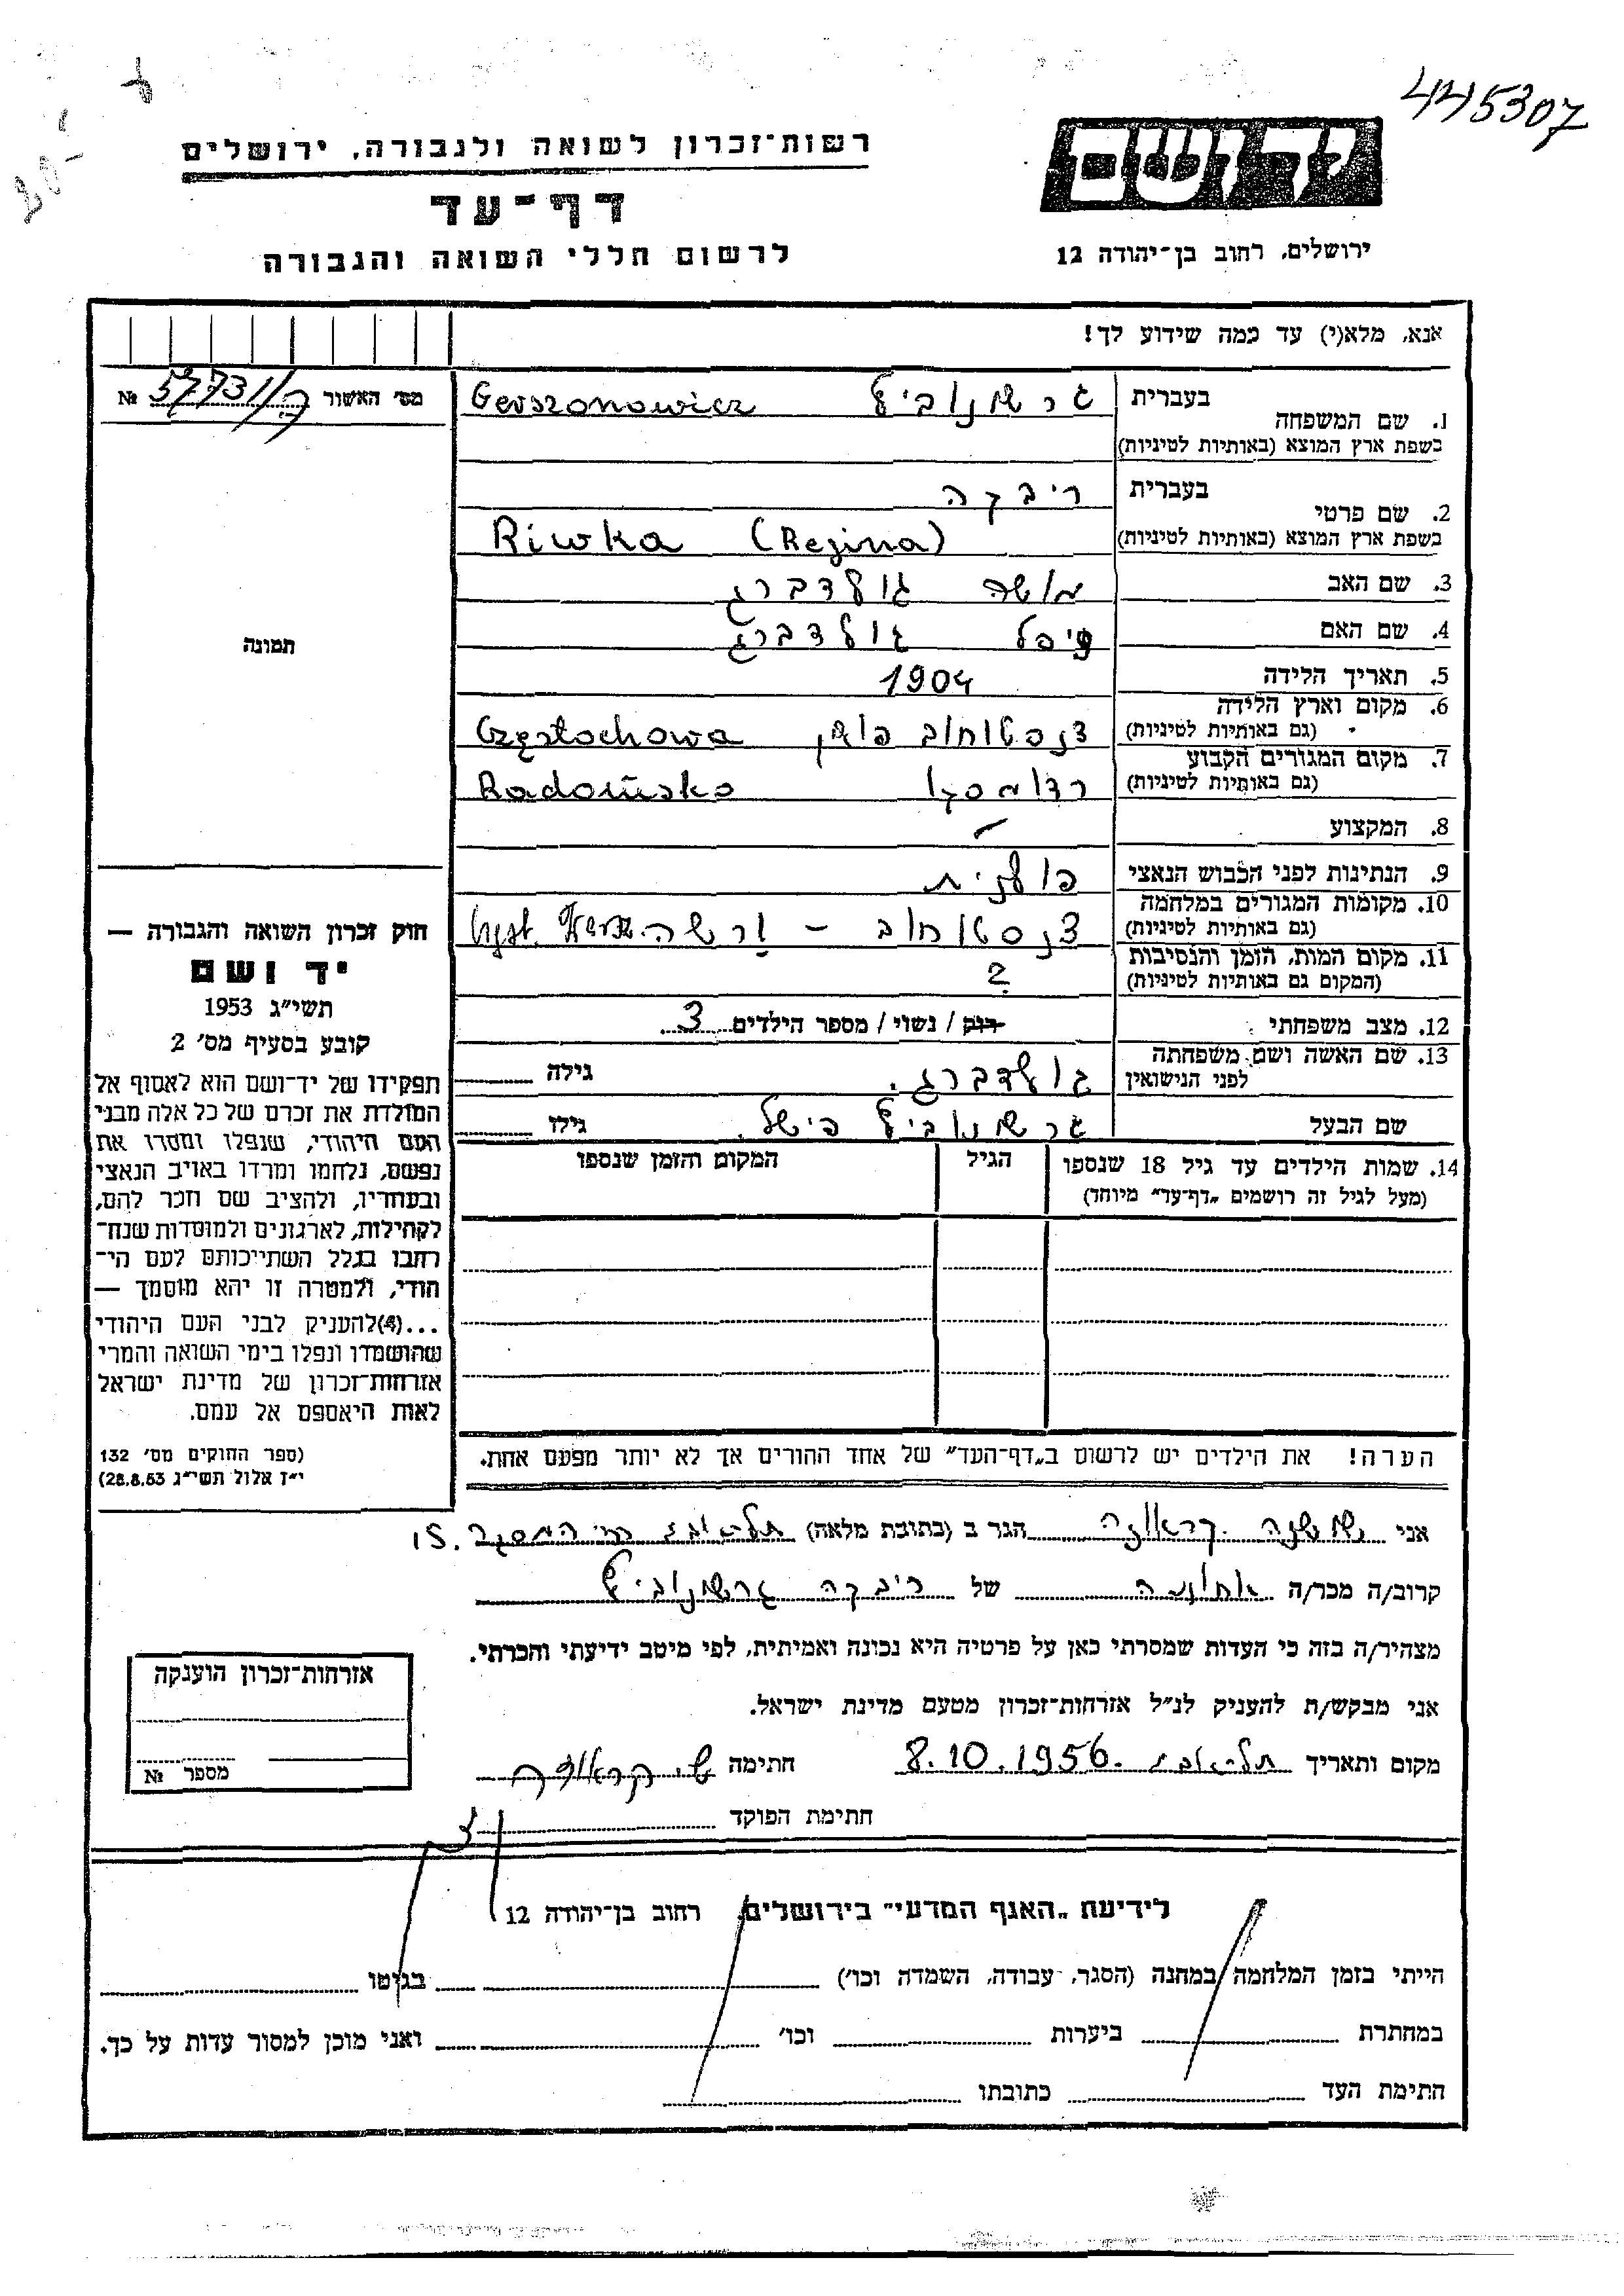 445307
20.-
רשות-זכרון לשואה ולגבורה, ירושלים
ידושם
דף-עד
לרשום חללי השואה והגבורה
ירושלים, רחוב בן-יהודה 12
אנא, מלא(י) עד כמה שידוע לך!
מס' האשור 57731/ק №
1. שם המשפחה בעברית גרשונוביץ Gerszonowicz
בשפת ארץ המוצא (באותיות לטיניות)
2. שם פרטי בעברית ריבקה
בשפת ארץ המוצא (באותיות לטיניות) Riwka (Regina)
3. שם האב משה גולדברג
4. שם האם גולדברג
תמונה
5. תאריך הלידה 1904
6. מקום וארץ הלידה
(גם באותיות לטיניות) צנסטוחוב פולין Częstochowa
7. מקום המגורים הקבוע
(גם באותיות לטיניות) רדומסקו Radomsko
8. המקצוע –
9. הנתינות לפני הכבוש הנאצי פולנית
10. מקומות המגורים במלחמה
(גם באותיות לטיניות) צנסטוחוב – ורשה
11. מקום המות, הזמן והנסיבות
(המקום גם באותיות לטיניות) ?
12. מצב משפחתי רוק / נשוי / מספר הילדים 3
13. שם האשה ושם משפחתה
לפני הנישואין גולדברג. גילה
שם הבעל גרשונוביץ פישל. גילו
14. שמות הילדים עד גיל 18 שנספו
(מעל לגיל זה רושמים „דף-עד" מיוחד)
הגיל
המקום והזמן שנספו
חוק זכרון השואה והגבורה —
יד ושם
תשי"ג 1953
קובע בסעיף מס' 2
תפקידו של יד-ושם הוא לאסוף אל
המולדת את זכרם של כל אלה מבני
העם היהודי, שנפלו ומסרו את
נפשם, נלחמו ומרדו באויב הנאצי
ובעוזריו, ולהציב שם וזכר להם,
לקהילות, לארגונים ולמוסדות שנח-
רחבו בגלל השתייכותם לעם הי-
הודי, ולמטרה זו יהא מוסמך —
...(4)להעניק לבני העם היהודי
שהושמדו ונפלו בימי השואה והמרי
אזרחות-זכרון של מדינת ישראל
לאות היאספם אל עמם.
(ספר החוקים מס' 132
י"ז אלול תשי"ג 28.8.53)
הערה! את הילדים יש לרשום ב„דף-העד" של אחד ההורים אך לא יותר מפעם אחת.
אני שושנה קראוזה הגר ב (כתובת מלאה) תל-אביב רח' המסגר 15.
קרוב/ה מכר/ה אחותה של ריבקה גרשונוביץ
מצהיר/ה בזה כי העדות שמסרתי כאן על פרטיה היא נכונה ואמיתית, לפי מיטב ידיעתי והכרתי.
אני מבקש/ת להעניק לנ"ל אזרחות-זכרון מטעם מדינת ישראל.
מקום ותאריך תל-אביב 8.10.1956. חתימה ש. קראוזה
חתימת הפוקד
אזרחות-זכרון הוענקה
מספר №
לידיעת „האגף המדעי" בירושלים, רחוב בן-יהודה 12
הייתי בזמן המלחמה במחנה (הסגר, עבודה, השמדה וכו') בגיטו
במחתרת ביערות וכו' ואני מוכן למסור עדות על כך.
חתימת העד כתובתו